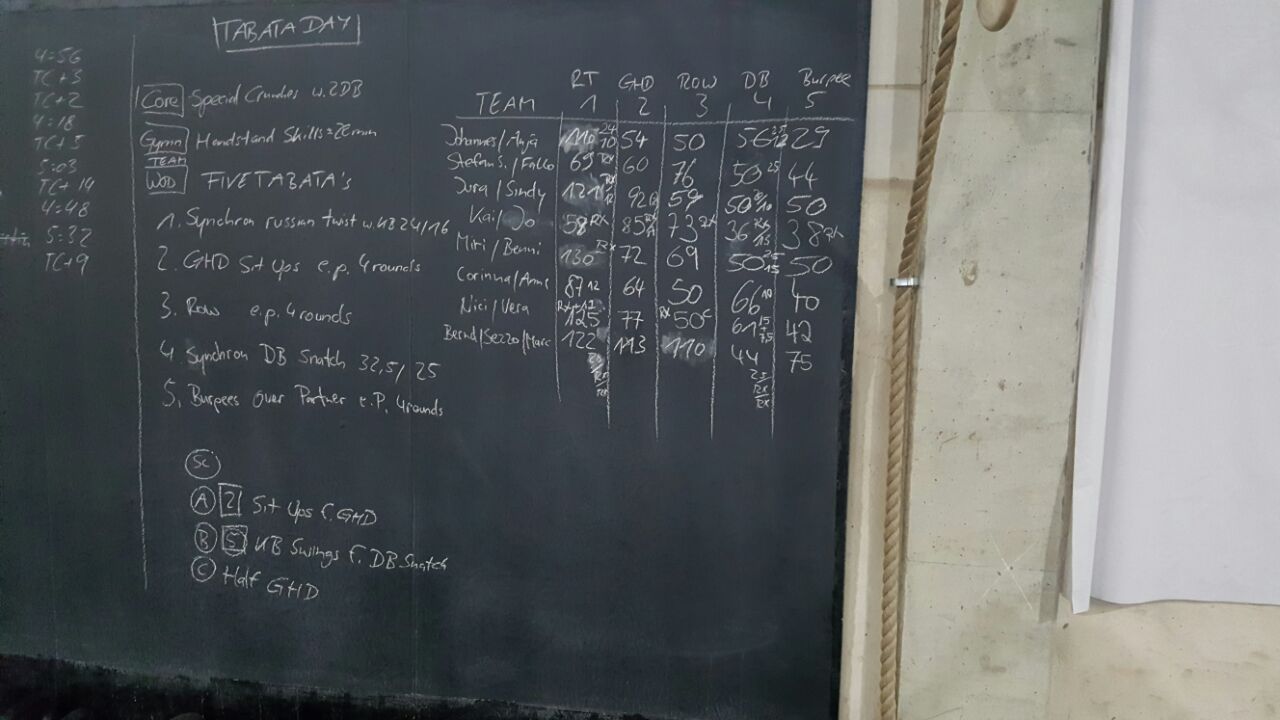 TABATA DAY
4:56
TC+3
TC+2
4:18
TC+5
5:03
TC+19
4:48
5:32
TC+9
Core Special Crunches w. 2DB
Gymn Handstand Skills
TEAM
WOD FIVE TABATA's
1. Synchron russian twist w. KB 24/16
2. GHD Sit Ups e.p. 4 rounds
3. Row e.p. 4 rounds
4. Synchron DB Snatch 32,5/25
5. Burpees over Partner e.P. 4 rounds
Sc
A 2 Sit Ups f. GHD
B 5 KB Swings f. DB Snatch
C Half GHD
RT GHD ROW DB Burpee
TEAM 1 2 3 4 5
Johannes/Anja 110 54 50 56 29
Stefan S./Falko 69 60 76 50 25 44
Jura/Sindy 121 92 59 50 50
Kai/Jo 58 Rx 85 73 36 38
Miri/Benni 130 Rx 72 69 50 25 15 50
Corinna/Anne 87 12 64 50 66 10 40
Nici/Vera 125 77 50 61 42
Bernd/Sezzo/Marc 122 113 110 44 75